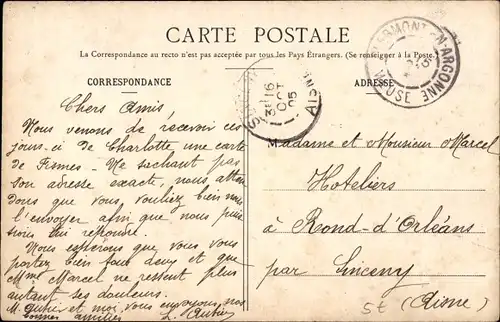 CARTE POSTALE
La Correspondance au recto n'est pas acceptée par tous les Pays Étrangers. (Se renseigner à la Poste.)
CORRESPONDANCE
ADRESSE
CLERMONT-EN-ARGONNE
MEUSE
16
OCT
05
Chers Amis,
Nous venons de recevoir ces
jours-ci de Charlotte une carte
de Fismes - Ne sachant pas
son adresse exacte, nous atten
dons que vous vouliez bien nous
l'envoyer afin que nous puis
sions lui répondre.
Nous espérons que vous vous
portez bien tous deux et que
Mme Marcel ne ressent plus
autant ses douleurs.
M. Autier et moi vous envoyons nos
bonnes amitiés L. Autier
Madame et Monsieur Marcel
Hoteliers
à Rond-d'Orléans
par Sinceny
(Aisne)